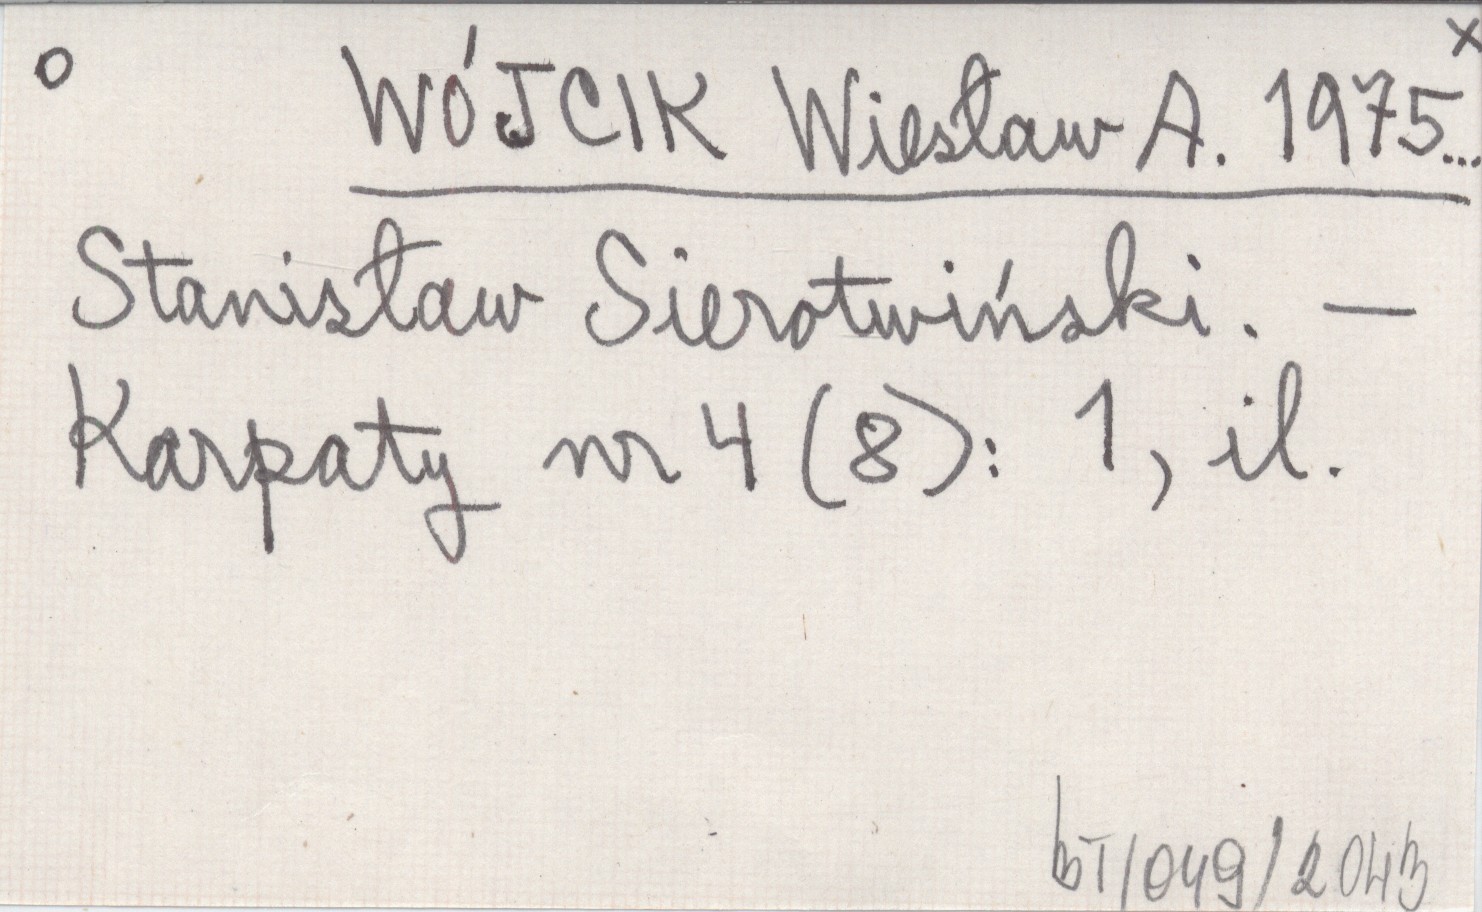 o WÓJCIK Wiesław A. 1975... x
Stanisław Sierotwiński. —
Karpaty nr 4 (8): 1, il.
bT/049/2043